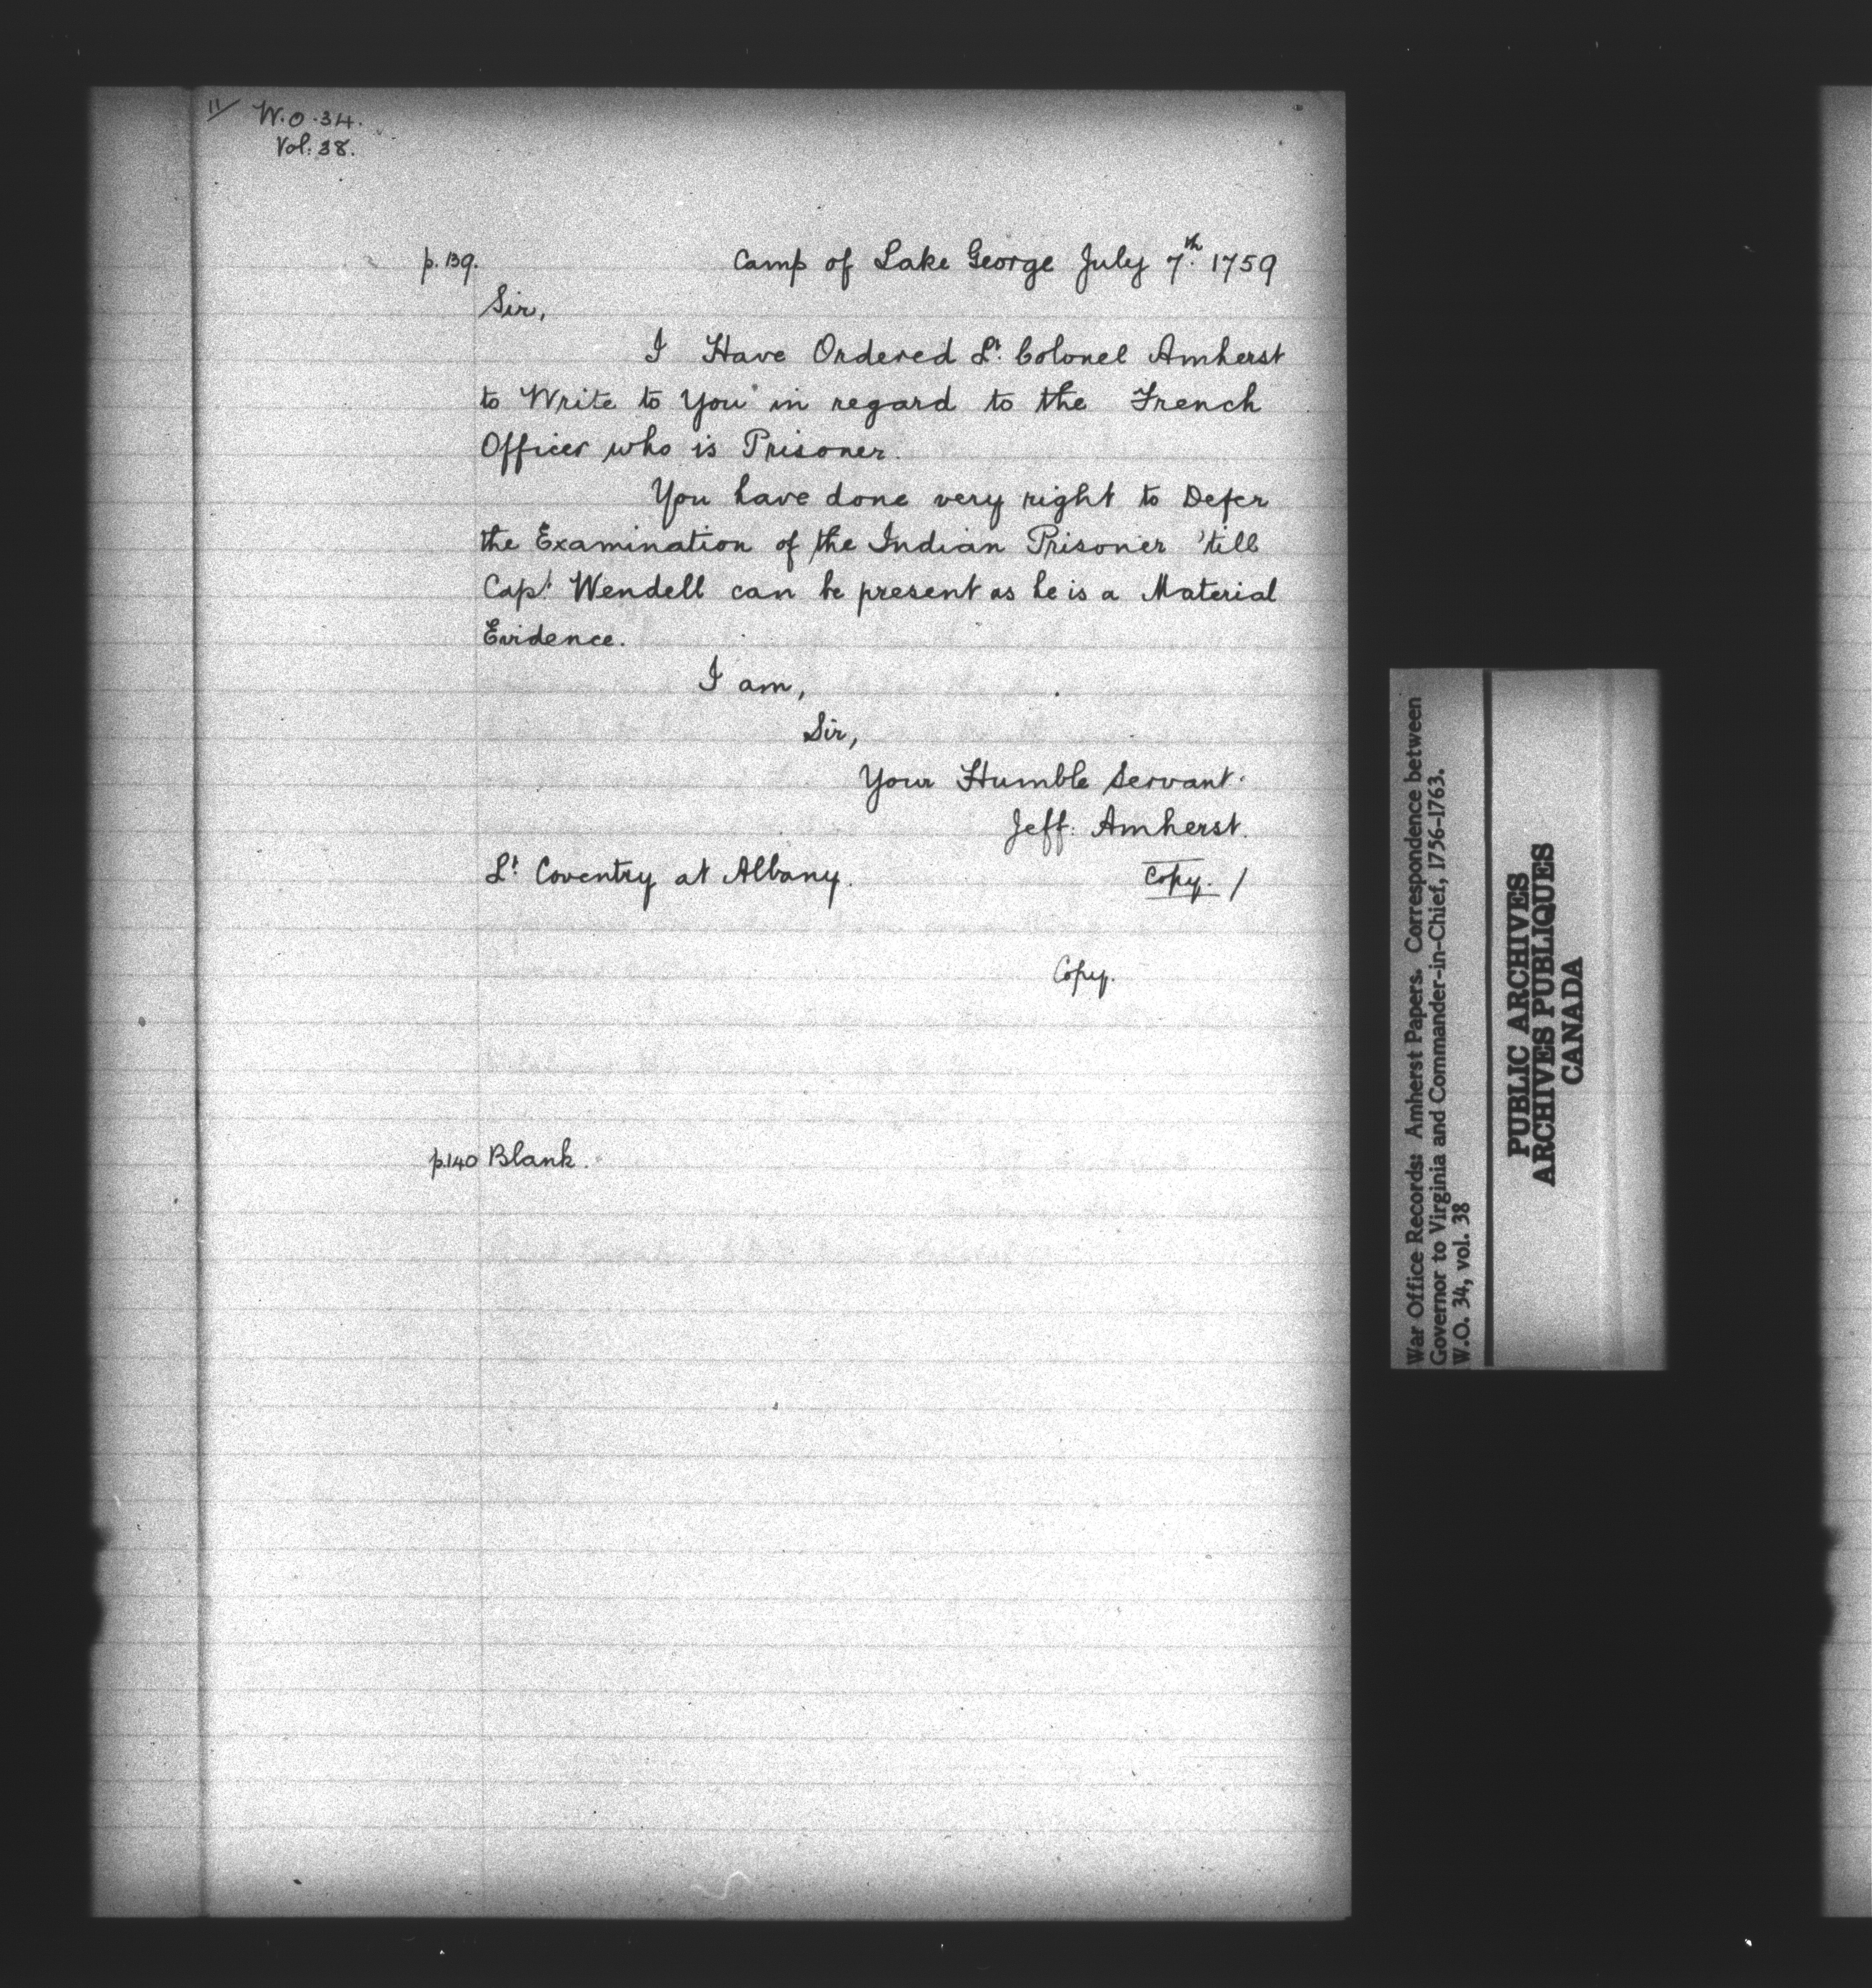 11/ W.O. 34.
Vol: 38.
p. 139. Camp of Lake George July 7th. 1759
Sir,
I Have Ordered Lt. Colonel Amherst
to Write to You in regard to the French
Officer who is Prisoner.
You have done very right to Defer
the Examination of the Indian Prisoner 'till
Capt. Wendell can be present as he is a Material
Evidence.
I am,
Sir,
Your Humble Servant.
Jeff: Amherst.
Lt. Coventry at Albany. Copy. /
Copy.
p.140 Blank.
War Office Records: Amherst Papers. Correspondence between
Governor to Virginia and Commander-in-Chief, 1756-1763.
W.O. 34, vol. 38
PUBLIC ARCHIVES
ARCHIVES PUBLIQUES
CANADA